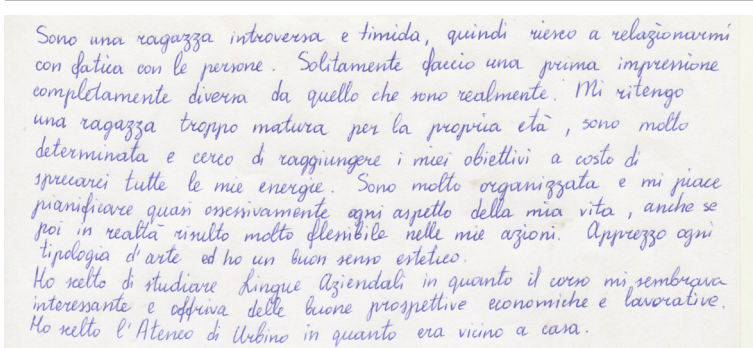 Sono una ragazza introversa e timida, quindi riesco a relazionarmi
con fatica con le persone. Solitamente faccio una prima impressione
completamente diversa da quello che sono realmente. Mi ritengo
una ragazza troppo matura per la propria età, sono molto
determinata e cerco di raggiungere i miei obiettivi a costo di
sprecarci tutte le mie energie. Sono molto organizzata e mi piace
pianificare quasi ossessivamente ogni aspetto della mia vita, anche se
poi in realtà risulto molto flessibile nelle mie azioni. Apprezzo ogni
tipologia d'arte ed ho un buon senso estetico.
Ho scelto di studiare Lingue Aziendali in quanto il corso mi sembrava
interessante e offriva delle buone prospettive economiche e lavorative.
Ho scelto l'Ateneo di Urbino in quanto era vicino a casa.